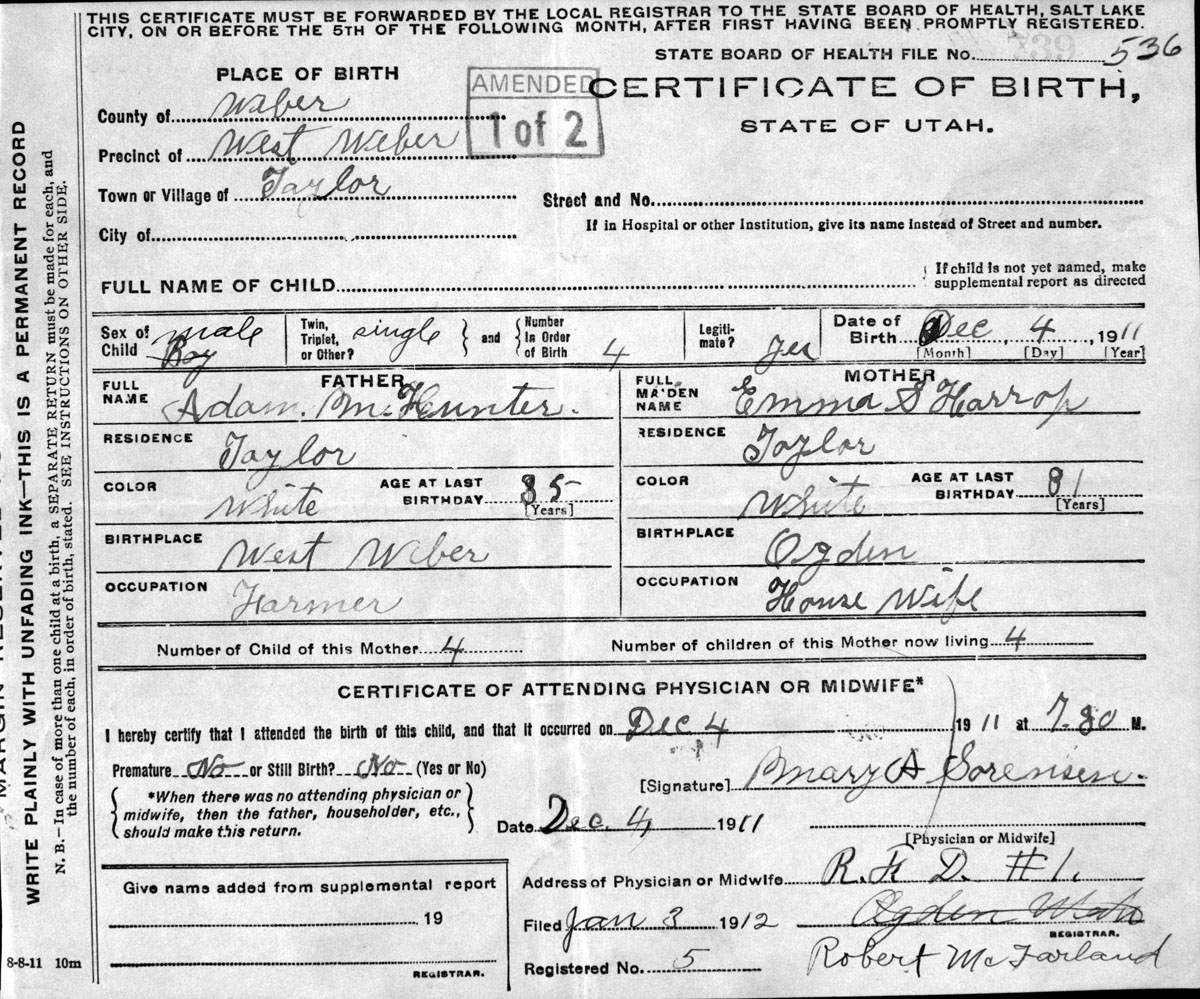 THIS CERTIFICATE MUST BE FORWARDED BY THE LOCAL REGISTRAR TO THE STATE BOARD OF HEALTH, SALT LAKE
CITY, ON OR BEFORE THE 5TH OF THE FOLLOWING MONTH, AFTER FIRST HAVING BEEN PROMPTLY REGISTERED.
STATE BOARD OF HEALTH FILE No. 536
PLACE OF BIRTH
AMENDED
1 of 2
CERTIFICATE OF BIRTH,
STATE OF UTAH.
County of Waber
Precinct of West Weber
Town or Village of Taylor
Street and No.
City of
If in Hospital or other Institution, give its name instead of Street and number.
FULL NAME OF CHILD
If child is not yet named, make
supplemental report as directed
Sex of Child male Boy
Twin, Triplet, or Other? single
and
Number in Order of Birth 4
Legitimate? Yes
Date of Birth Dec 4, 1911
[Month] [Day] [Year]
FATHER
FULL NAME Adam. Mc Hunter.
MOTHER
FULL MAIDEN NAME Emma S Harrop
RESIDENCE Taylor
RESIDENCE Taylor
COLOR White
AGE AT LAST BIRTHDAY 35 [Years]
COLOR White
AGE AT LAST BIRTHDAY 31 [Years]
BIRTHPLACE West Weber
BIRTHPLACE Ogden
OCCUPATION Farmer
OCCUPATION House Wife
Number of Child of this Mother 4
Number of children of this Mother now living 4
CERTIFICATE OF ATTENDING PHYSICIAN OR MIDWIFE*
I hereby certify that I attended the birth of this child, and that it occurred on Dec 4 1911 at 7.30 M.
Premature No or Still Birth? No (Yes or No)
[Signature] Mary A Sorensen.
*When there was no attending physician or
midwife, then the father, householder, etc.,
should make this return.
Date Dec. 4, 1911
[Physician or Midwife]
Give name added from supplemental report
19
REGISTRAR.
Address of Physician or Midwife R. F. D. #1.
Ogden Utah
Filed Jan 3 1912
REGISTRAR.
Registered No. 5
Robert McFarland
8-8-11 10m
WRITE PLAINLY WITH UNFADING INK—THIS IS A PERMANENT RECORD
N. B.—In case of more than one child at birth, a SEPARATE RETURN must be made for each, and
the number of each, in order of birth, stated. SEE INSTRUCTIONS ON OTHER SIDE.